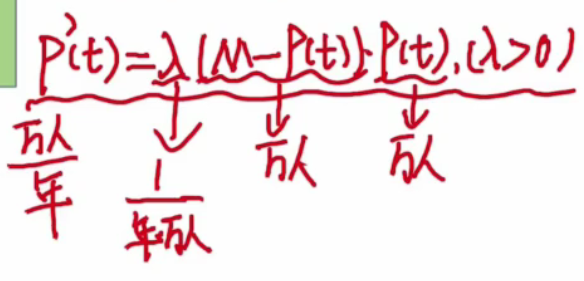 P'(t)=λ(M-P(t))·P(t).(λ>0)
万人/年
1/年·万人
万人
万人